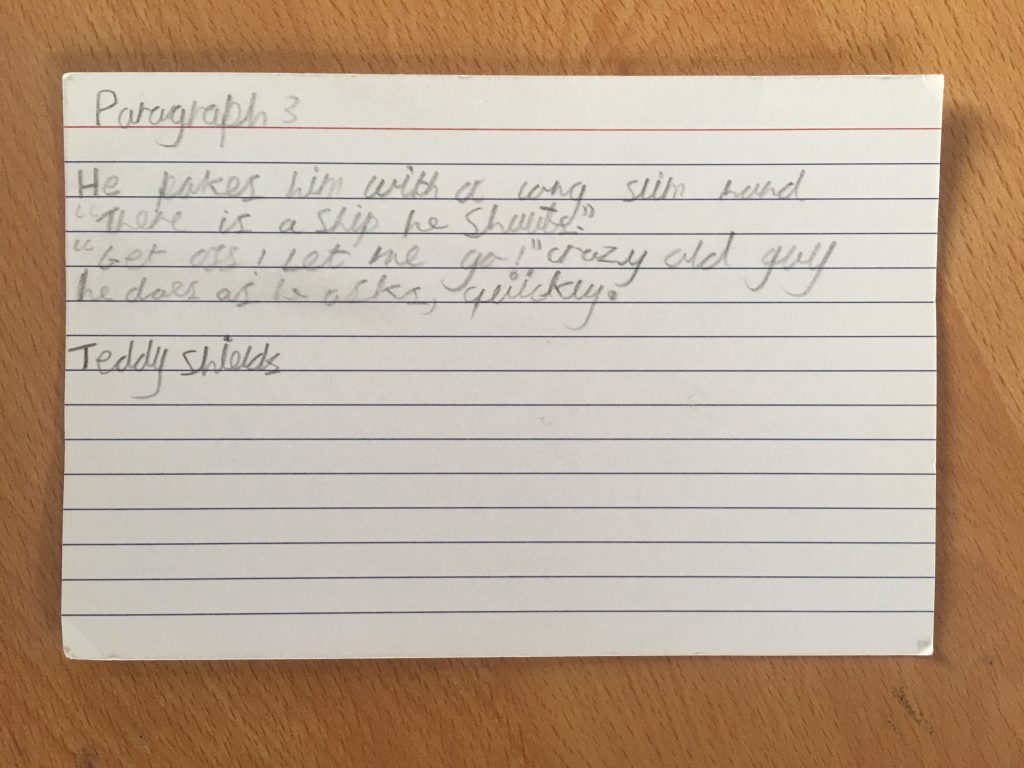 Paragraph 3
He pakes him with a long slim hand
"There is a ship he shouts."
"Get off! Let me go!" crazy old guy
he does as he asks, quickly.
Teddy Shields